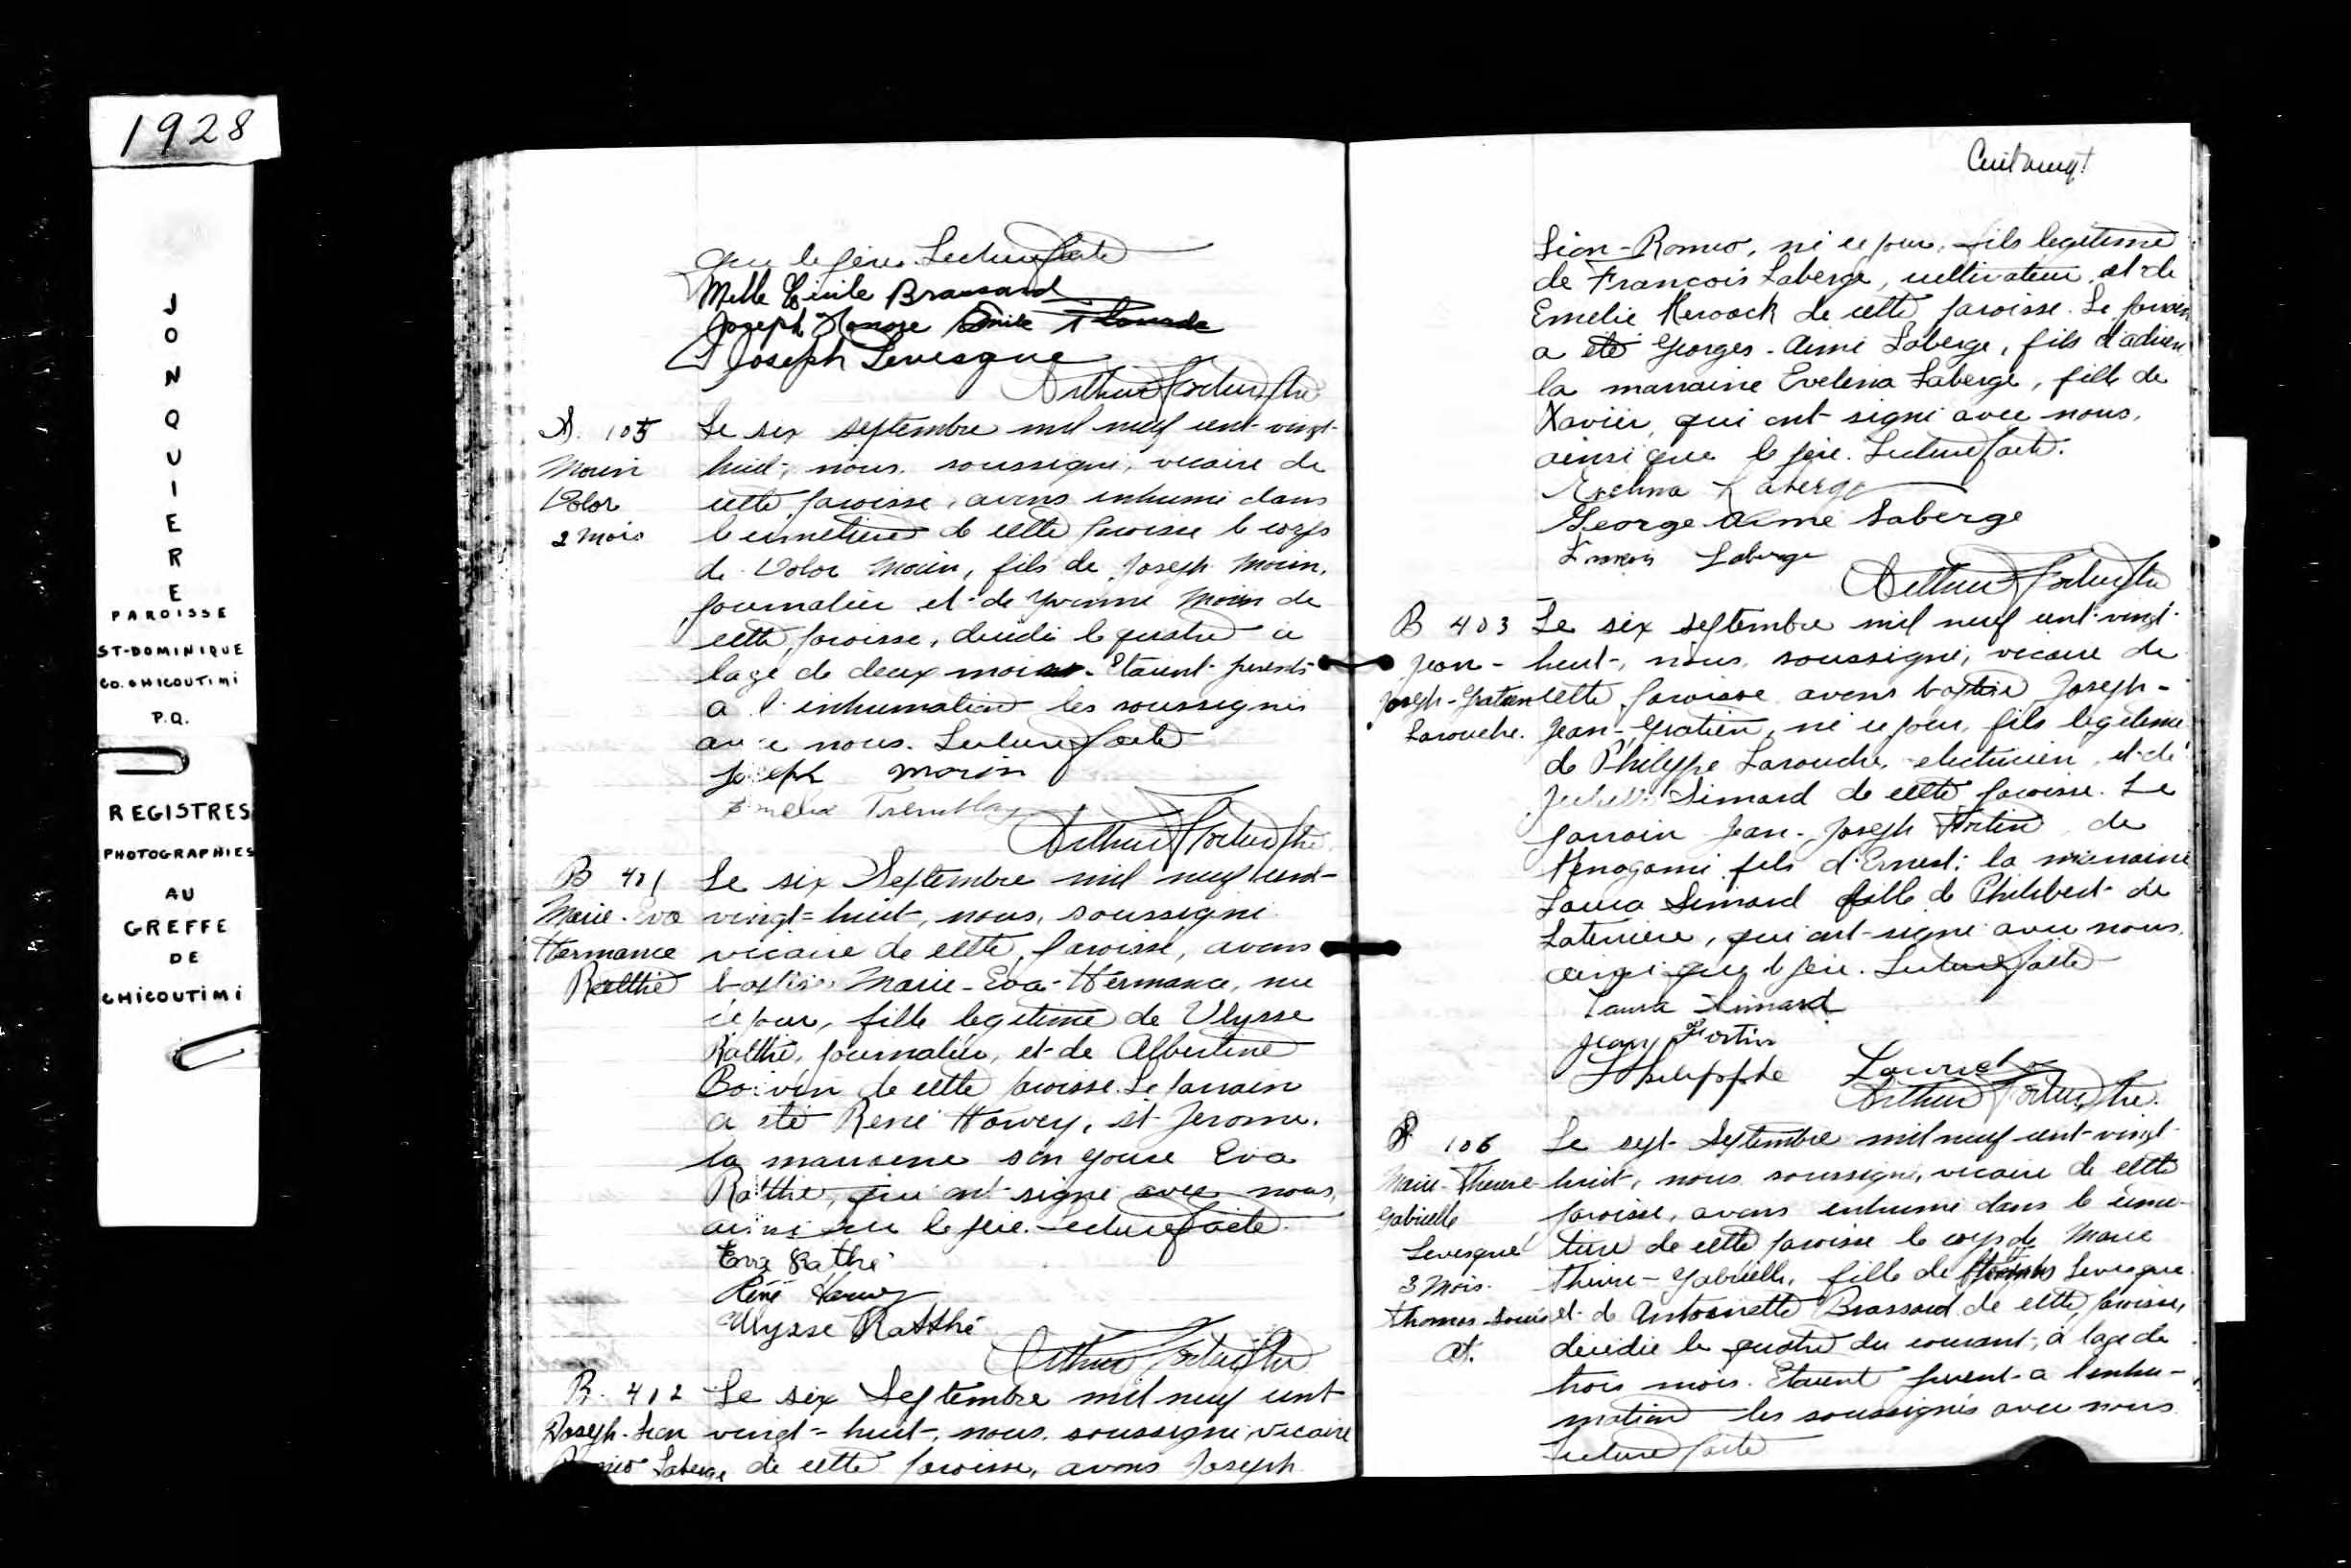 1928
JONQUIERE
PAROISSE
ST-DOMINIQUE
CO. CHICOUTIMI
P.Q.
REGISTRES
PHOTOGRAPHIES
AU
GREFFE
DE
CHICOUTIMI
que le père. Lecture faite
Melle Cécile Brassard
Joseph Honore Emile
Joseph Levesque
Arthur Fortin, Ptre
S. 105
Morin
Dolor
2 mois
Le six septembre mil neuf cent vingt-
huit, nous, soussigné, vicaire de
cette paroisse, avons inhumé dans
le cimetière de cette paroisse le corps
de Dolor Morin, fils de Joseph Morin,
journalier et de Yvonne Morin de
cette paroisse, décédé le quatre à
l'age de deux mois. Etaient présents
a l'inhumation les soussignés
avec nous. Lecture faite
Joseph Morin
Tremblay
Arthur Fortin, Ptre.
B 401
Marie-Eva
Hermance
Ratthé
Le six Septembre mil neuf cent-
vingt-huit, nous, soussigné
vicaire de cette paroisse, avons
baptisé Marie-Eva-Hermance, née
ce jour, fille legitime de Ulysse
Ratthé, journalier, et de Albertine
Boivin de cette paroisse. Le parrain
a été René Harvey, St Jerome.
la marraine son épouse Eva
Ratthé, qui ont signé avec nous,
ainsi que le père. Lecture faite.
Eva Rathé
René Harvey
Ulysse Ratthé
Arthur Fortin, Ptre
B. 402
Joseph-Léon
Roméo Laberge
Le six Septembre mil neuf cent
vingt-huit, nous, soussigné, vicaire
de cette paroisse, avons Joseph
Cent vingt
Léon-Romeo, né ce jour, fils legitime
de Francois Laberge, cultivateur, et de
Emelie de cette paroisse. Le parrain
a été Georges-Aimé Laberge, fils d'adrien
la marraine Evelina Laberge, fille de
Xavier, qui ont signé avec nous,
ainsi que le père. Lecture faite.
Evelina Laberge
George Aimé Laberge
Laberge
Arthur Fortin, Ptre
B 403
Jean-
Joseph-Gratien
Larouche.
Le six septembre mil neuf cent-vingt-
huit, nous, soussigné, vicaire de
cette paroisse avons baptisé Joseph-
Jean-Gratien, né ce jour, fils legitime
de Philippe Larouche, electricien, et de
Simard de cette paroisse. Le
parrain Jean-Joseph Fortin de
Kenogami fils d'Ernest: la marraine
Laura Simard fille de Philibert de
Laterriere, qui ont signé avec nous,
ainsi que le père. Lecture faite
Laura Simard
Jean Fortin
Philippe Larouche
Arthur Fortin, Ptre.
S 106
Marie-Therese
Gabrielle
Levesque
3 Mois.
Thomas-Louis
at.
Le sept Septembre mil neuf cent-vingt-
huit, nous soussigné, vicaire de cette
paroisse, avons inhumé dans le cime-
tiere de cette paroisse le corps de Marie
Thérèse-Gabrielle, fille de Levesque
et de Antoinette Brassard de cette paroisse,
décédée le quatre du courant, à l'age de
trois mois. Etaient présent a l'inhu-
mation les soussignés avec nous
Lecture faite